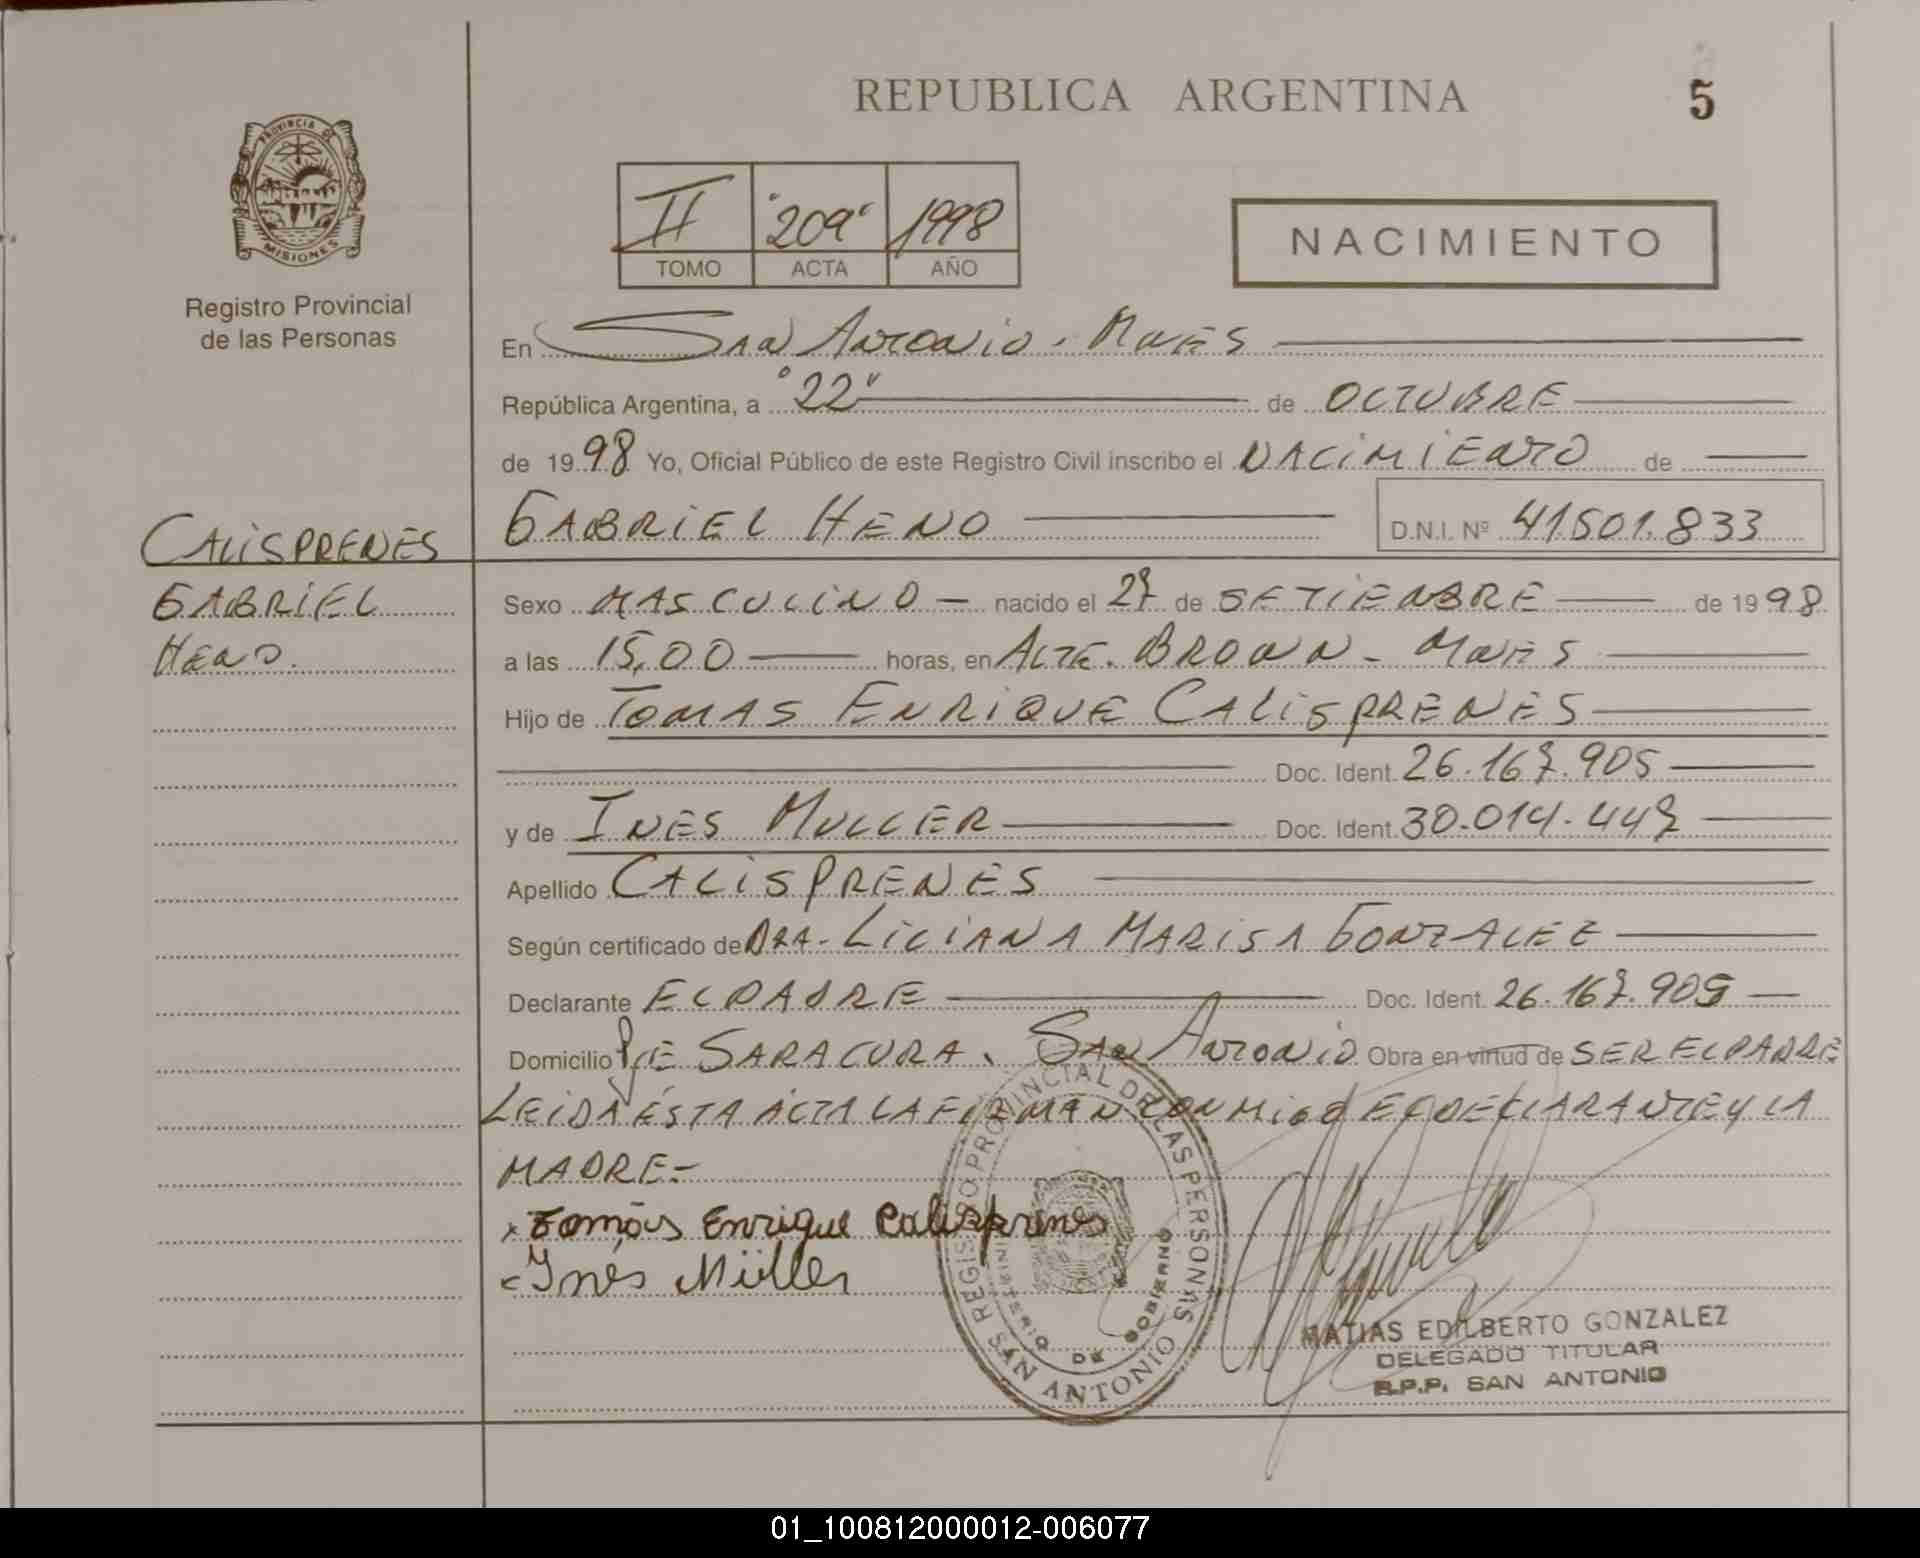 REPUBLICA ARGENTINA
5
PROVINCIA DE
MISIONES
Registro Provincial
de las Personas
II "209" 1998
TOMO ACTA AÑO
NACIMIENTO
En SAN ANTONIO - MNES
República Argentina, a "22" de OCTUBRE
de 1998 Yo, Oficial Público de este Registro Civil inscribo el NACIMIENTO de
GABRIEL HENO D.N.I. Nº 41.501.833
CALISPRENES
GABRIEL
HENO.
Sexo MASCULINO — nacido el 27 de SETIEMBRE de 1998
a las 15,00 horas, en ALTE. BROWN - MNES
Hijo de TOMAS ENRIQUE CALISPRENES
Doc. Ident. 26.167.905
y de INES MULLER Doc. Ident. 30.014.447
Apellido CALISPRENES
Según certificado de DRA. LILIANA MARISA GONZALEZ
Declarante EL PADRE Doc. Ident. 26.167.905 —
Domicilio Pje SARACURA. SAN ANTONIO Obra en virtud de SER EL PADRE
LEIDA ÉSTA ACTA LA FIRMAN CONMIGO EL DECLARANTE Y LA
MADRE.-
x Tomás Enrique Calisprenes
Inés Müller
REGISTRO PROVINCIAL DE LAS PERSONAS
MINISTERIO DE GOBIERNO
SAN ANTONIO
MATIAS EDILBERTO GONZALEZ
DELEGADO TITULAR
R.P.P. SAN ANTONIO
01_100812000012-006077